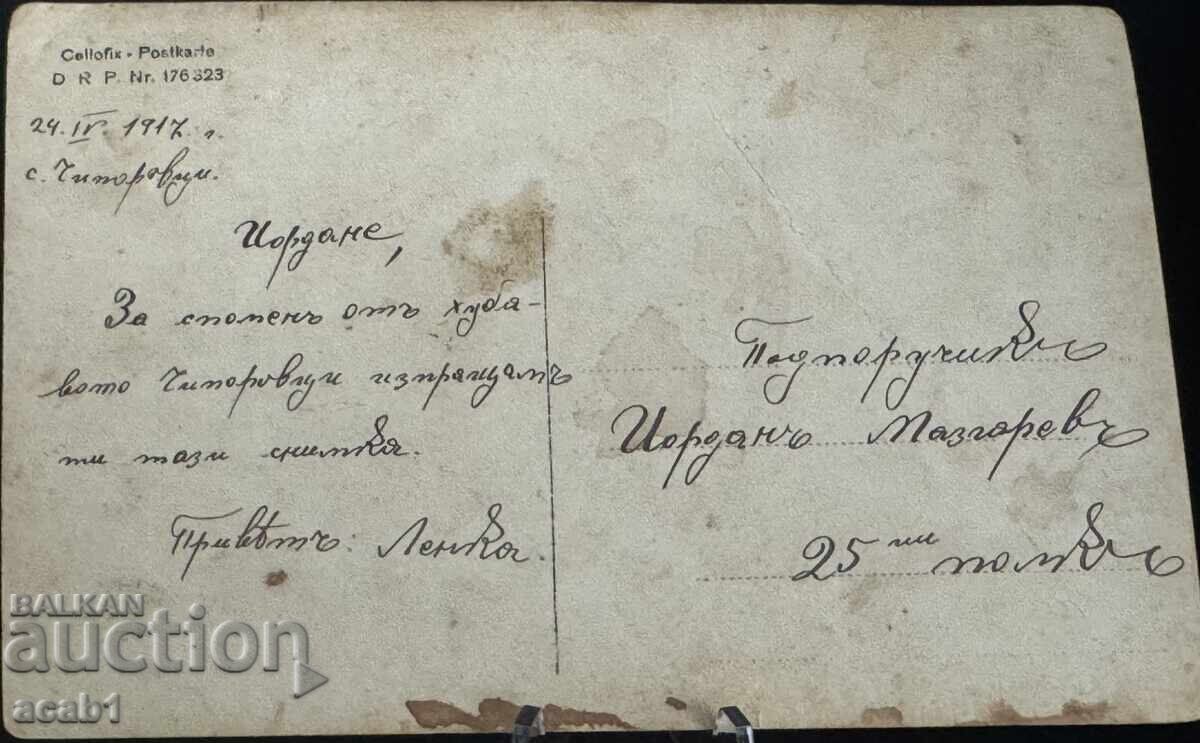 Cellofix - Postkarte
D R P. Nr. 176323
24. IV. 1917 г.
с. Чипоровци.
Иордане,
За споменъ отъ хуба-
вото Чипоровци изпращамъ
ти тази снимка.
Приветъ: Ленка.
Подпоручикъ
Иорданъ Мазгаревъ
25ии полкъ
BALKAN
auction
acab1